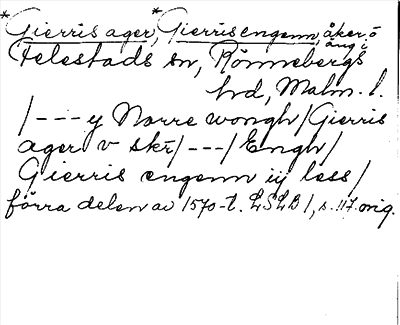 *Gierris ager, *Gierris engenn, åker o äng i
Felestads sn, Rönnebergs
hd, Malm. l.
/--- y Norre wongh/Gierris
ager v skr/---/Engh/
Gierris engenn iij less/
förra delen av 1570-t. LSLB 1, s. 117. orig.